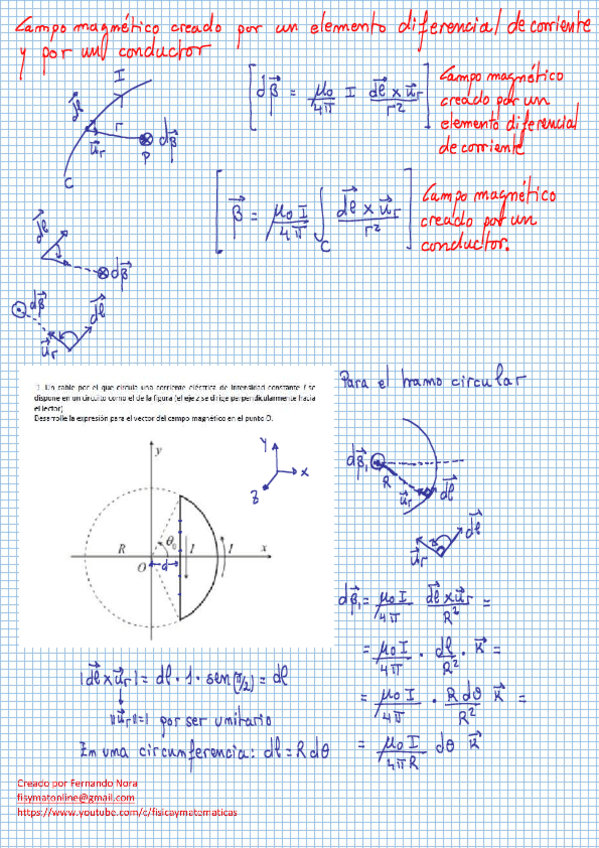 Campo magnético creado por un elemento diferencial de corriente
y por un conductor
[dβ⃗ = μ₀/4π I (dℓ⃗ × u⃗r)/r²]
Campo magnético
creado por un
elemento diferencial
de corriente
I
dℓ⃗
r
u⃗r
dβ⃗
P
C
[β⃗ = μ₀ I/4π ∫C (dℓ⃗ × u⃗r)/r²]
Campo magnético
creado por un
conductor.
dℓ⃗
dβ⃗
dβ⃗
dℓ⃗
u⃗r
1. Un cable por el que circula una corriente eléctrica de intensidad constante I se
dispone en un circuito como el de la figura (el eje z se dirige perpendicularmente hacia
el lector)
Desarrolle la expresión para el vector del campo magnético en el punto O.
y
Y
X
Z
R
θ₀
I
I
x
O
d
Para el tramo circular
dβ⃗₁
R
u⃗r
dℓ⃗
dℓ⃗
u⃗r
dβ⃗₁ = μ₀ I/4π (dℓ⃗ × u⃗r)/R² =
= μ₀ I/4π · dℓ/R² · k⃗ =
= μ₀ I/4π · R dθ/R² k⃗ =
= μ₀ I/4πR dθ k⃗
|dℓ⃗ × u⃗r| = dℓ · 1 · sen(π/2) = dℓ
|u⃗r| = 1 por ser unitario
En una circunferencia: dℓ = R dθ
Creado por Fernando Nora
fisymatonline@gmail.com
https://www.youtube.com/c/fisicaymatematicas